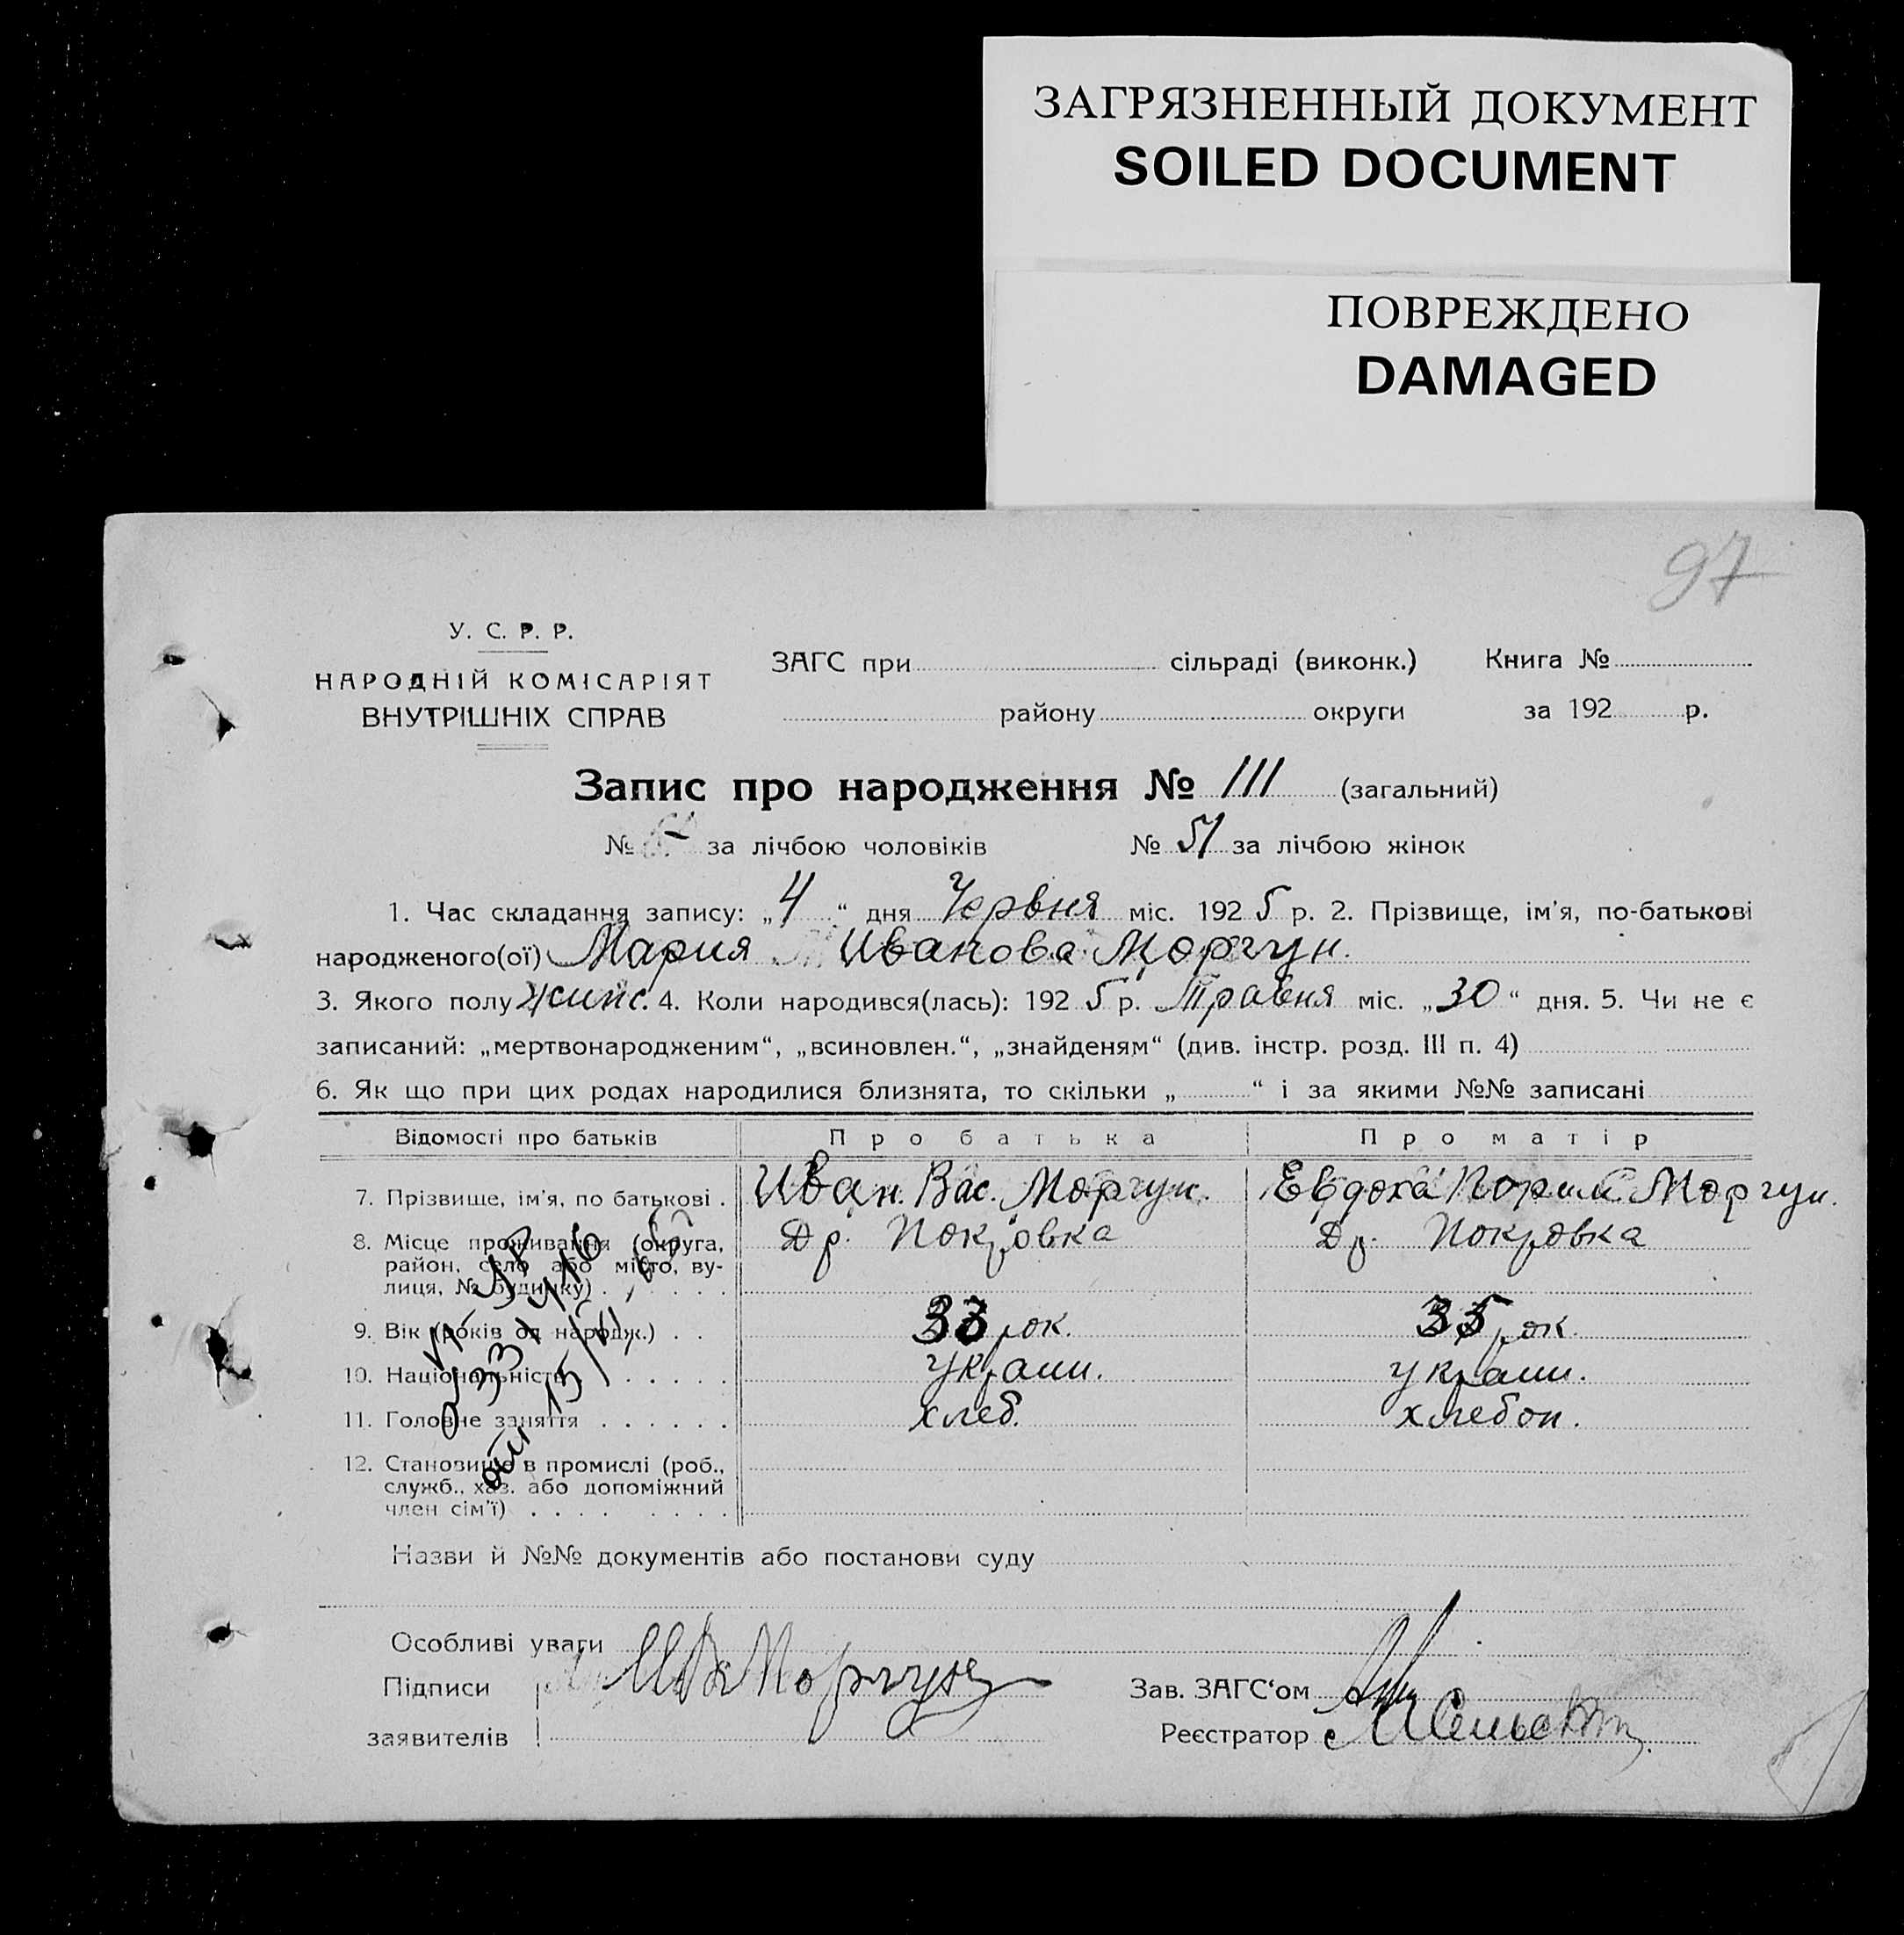 ЗАГРЯЗНЕННЫЙ ДОКУМЕНТ
SOILED DOCUMENT
ПОВРЕЖДЕНО
DAMAGED
97
У. С. Р. Р.
НАРОДНІЙ КОМІСАРІЯТ
ВНУТРІШНІХ СПРАВ
ЗАГС при сільраді (виконк.) Книга №
району округи за 192 р.
Запис про народження № 111 (загальний)
№ за лічбою чоловіків № 51 за лічбою жінок
1. Час складання запису: „4“ дня Червня міс. 1925 р. 2. Прізвище, ім'я, по-батькові
народженого(ої) Мария Иванова Моргун.
3. Якого полу жинс. 4. Коли народився(лась): 1925 р. Травня міс. „30“ дня. 5. Чи не є
записаний: „мертвонародженим“, „всиновлен.“, „знайденям“ (див. інстр. розд. III п. 4)
6. Як що при цих родах народилися близнята, то скільки „ “ і за якими №№ записані
Відомості про батьків Про батька Про матір
7. Прізвище, ім'я, по батькові . Иван. Вас. Моргун. Евдоха Моргун.
8. Місце проживання (округа, Др. Покровка Др. Покровка
район, село або місто, ву-
лиця, № будинку) . . . . .
9. Вік (років од народж.) . . рок. 35 рок.
10. Національність . . . . . украин. украин.
11. Головне заняття . . . . . . хлеб. хлебоп.
12. Становище в промислі (роб.,
служб., хаз. або допоміжний
член сім'ї) . . . . . . . .
Назви й №№ документів або постанови суду
Особливі уваги
Підписи Моргун Зав. ЗАГС‘ом
заявителів Реєстратор